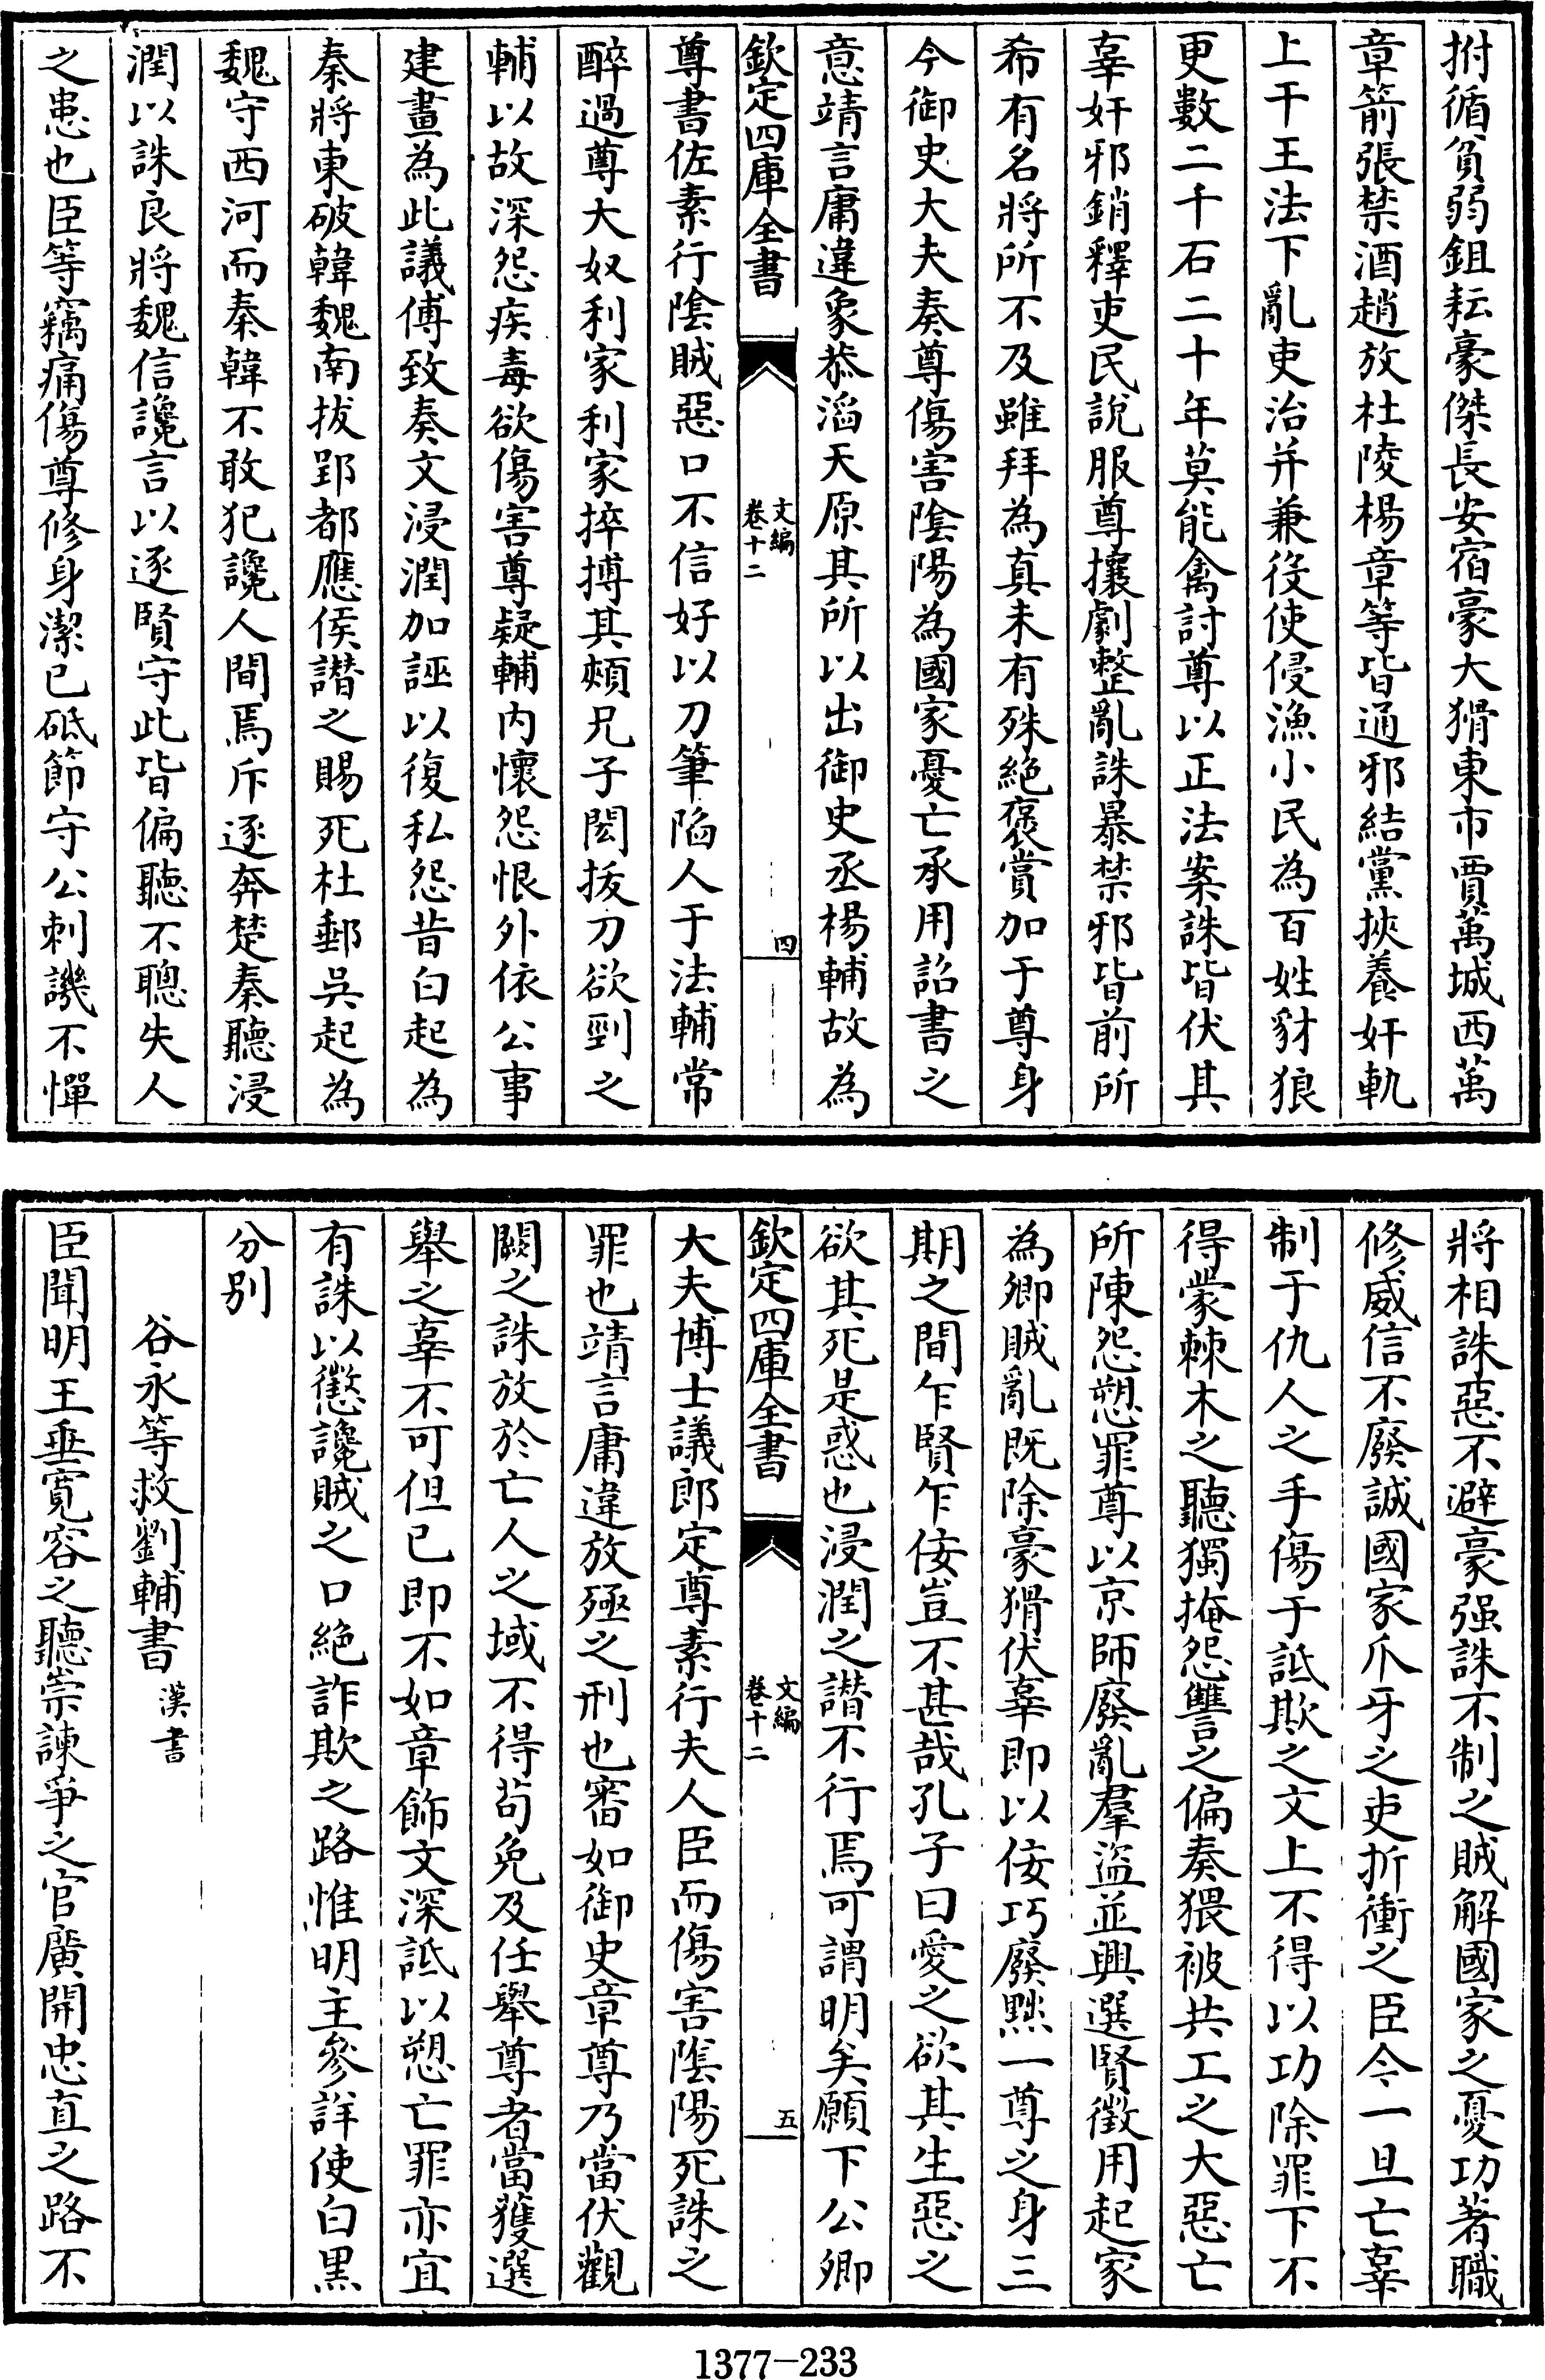 拊循貧弱鉏耘豪傑長安宿豪大猾東市賈萬城西萬
章箭張禁酒趙放杜陵楊章等皆通邪結黨挾養奸軌
上干王法下亂吏治并兼役使侵漁小民為百姓豺狼
更數二千石二十年莫能禽討尊以正法案誅皆伏其
辜奸邪銷釋吏民說服尊攘劇整亂誅暴禁邪皆前所
希有名將所不及雖拜為真未有殊絶褒賞加于尊身
今御史大夫奏尊傷害隂陽為國家憂亡承用詔書之
意靖言庸違象恭滔天原其所以出御史丞楊輔故為
欽定四庫全書
文編
卷十二
四
尊書佐素行隂賊惡口不信好以刀筆陷人于法輔常
醉過尊大奴利家利家捽搏其頰兄子閎拔刀欲剄之
輔以故深怨疾毒欲傷害尊疑輔内懷怨恨外依公事
建畫為此議傅致奏文浸潤加誣以復私怨昔白起為
秦將東破韓魏南拔郢都應侯譛之賜死杜郵吳起為
魏守西河而秦韓不敢犯讒人間焉斥逐奔楚秦聽浸
潤以誅良將魏信讒言以逐賢守此皆偏聽不聰失人
之患也臣等竊痛傷尊修身潔已砥節守公刺譏不憚
將相誅惡不避豪强誅不制之賊解國家之憂功著職
修威信不廢誠國家爪牙之吏折衝之臣今一旦亡辜
制于仇人之手傷于詆欺之文上不得以功除罪下不
得蒙棘木之聽獨掩怨讐之偏奏猥被共工之大惡亡
所陳怨愬罪尊以京師廢亂羣盜並興選賢徵用起家
為卿賊亂既除豪猾伏辜即以佞巧廢黜一尊之身三
期之間乍賢乍佞豈不甚哉孔子曰愛之欲其生惡之
欲其死是惑也浸潤之譛不行焉可謂明矣願下公卿
欽定四庫全書
文編
卷十二
五
大夫博士議郎定尊素行夫人臣而傷害隂陽死誅之
罪也靖言庸違放殛之刑也審如御史章尊乃當伏觀
闕之誅放於亡人之域不得茍免及任舉尊者當獲選
舉之辜不可但已即不如章飾文深詆以愬亡罪亦宜
有誅以懲讒賊之口絶詐欺之路惟明主參詳使白黑
分别
谷永等救劉輔書漢書
臣聞明王垂寛容之聽崇諫爭之官廣開忠直之路不
1377-233